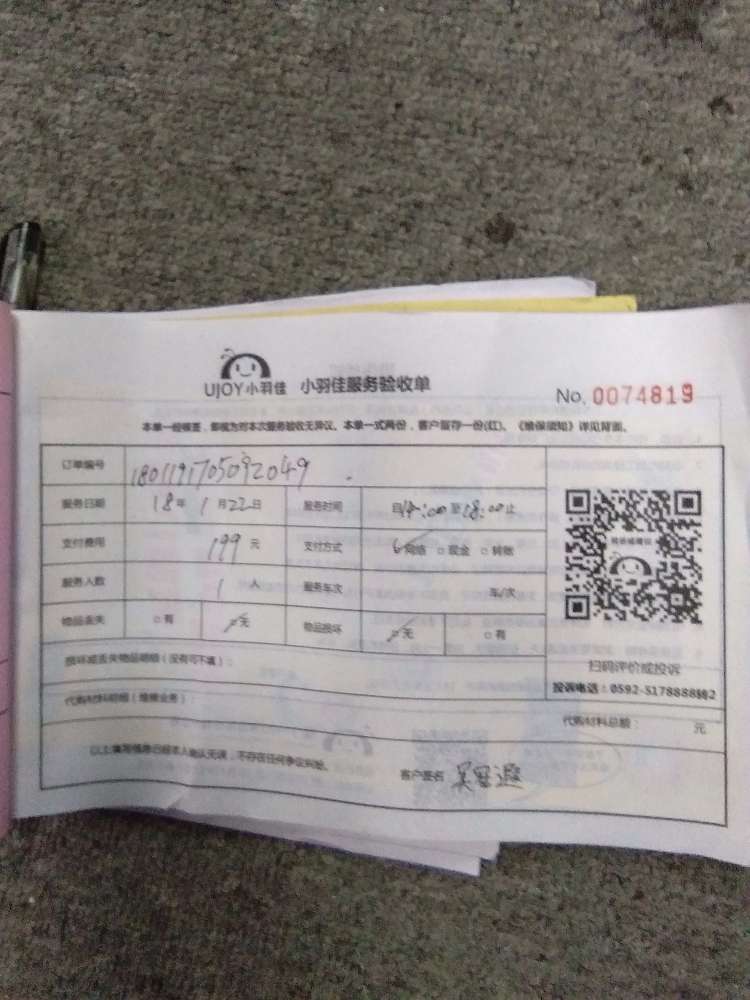 UJOY小羽佳 小羽佳服务验收单 No. 0074819
本单一经核签，即视为对本次服务验收无异议。本单一式两份，客户留存一份(红)。《维保须知》详见背面。
订单编号 1801191705092049
服务日期 18年 1月22日 服务时间 自14:00至18:00止
支付费用 199 元 支付方式 网络 □现金 □转账
服务人数 1 人 服务车次 车/次
物品丢失 □有 无 物品损坏 无 □有
损坏或丢失物品明细（没有可不填）：
扫码评价或投诉
投诉电话：0592-5178888转2
代购材料明细（维修业务）： 代购材料总额： 元
以上填写信息已经本人确认无误，不存在任何争议纠纷。 客户签名